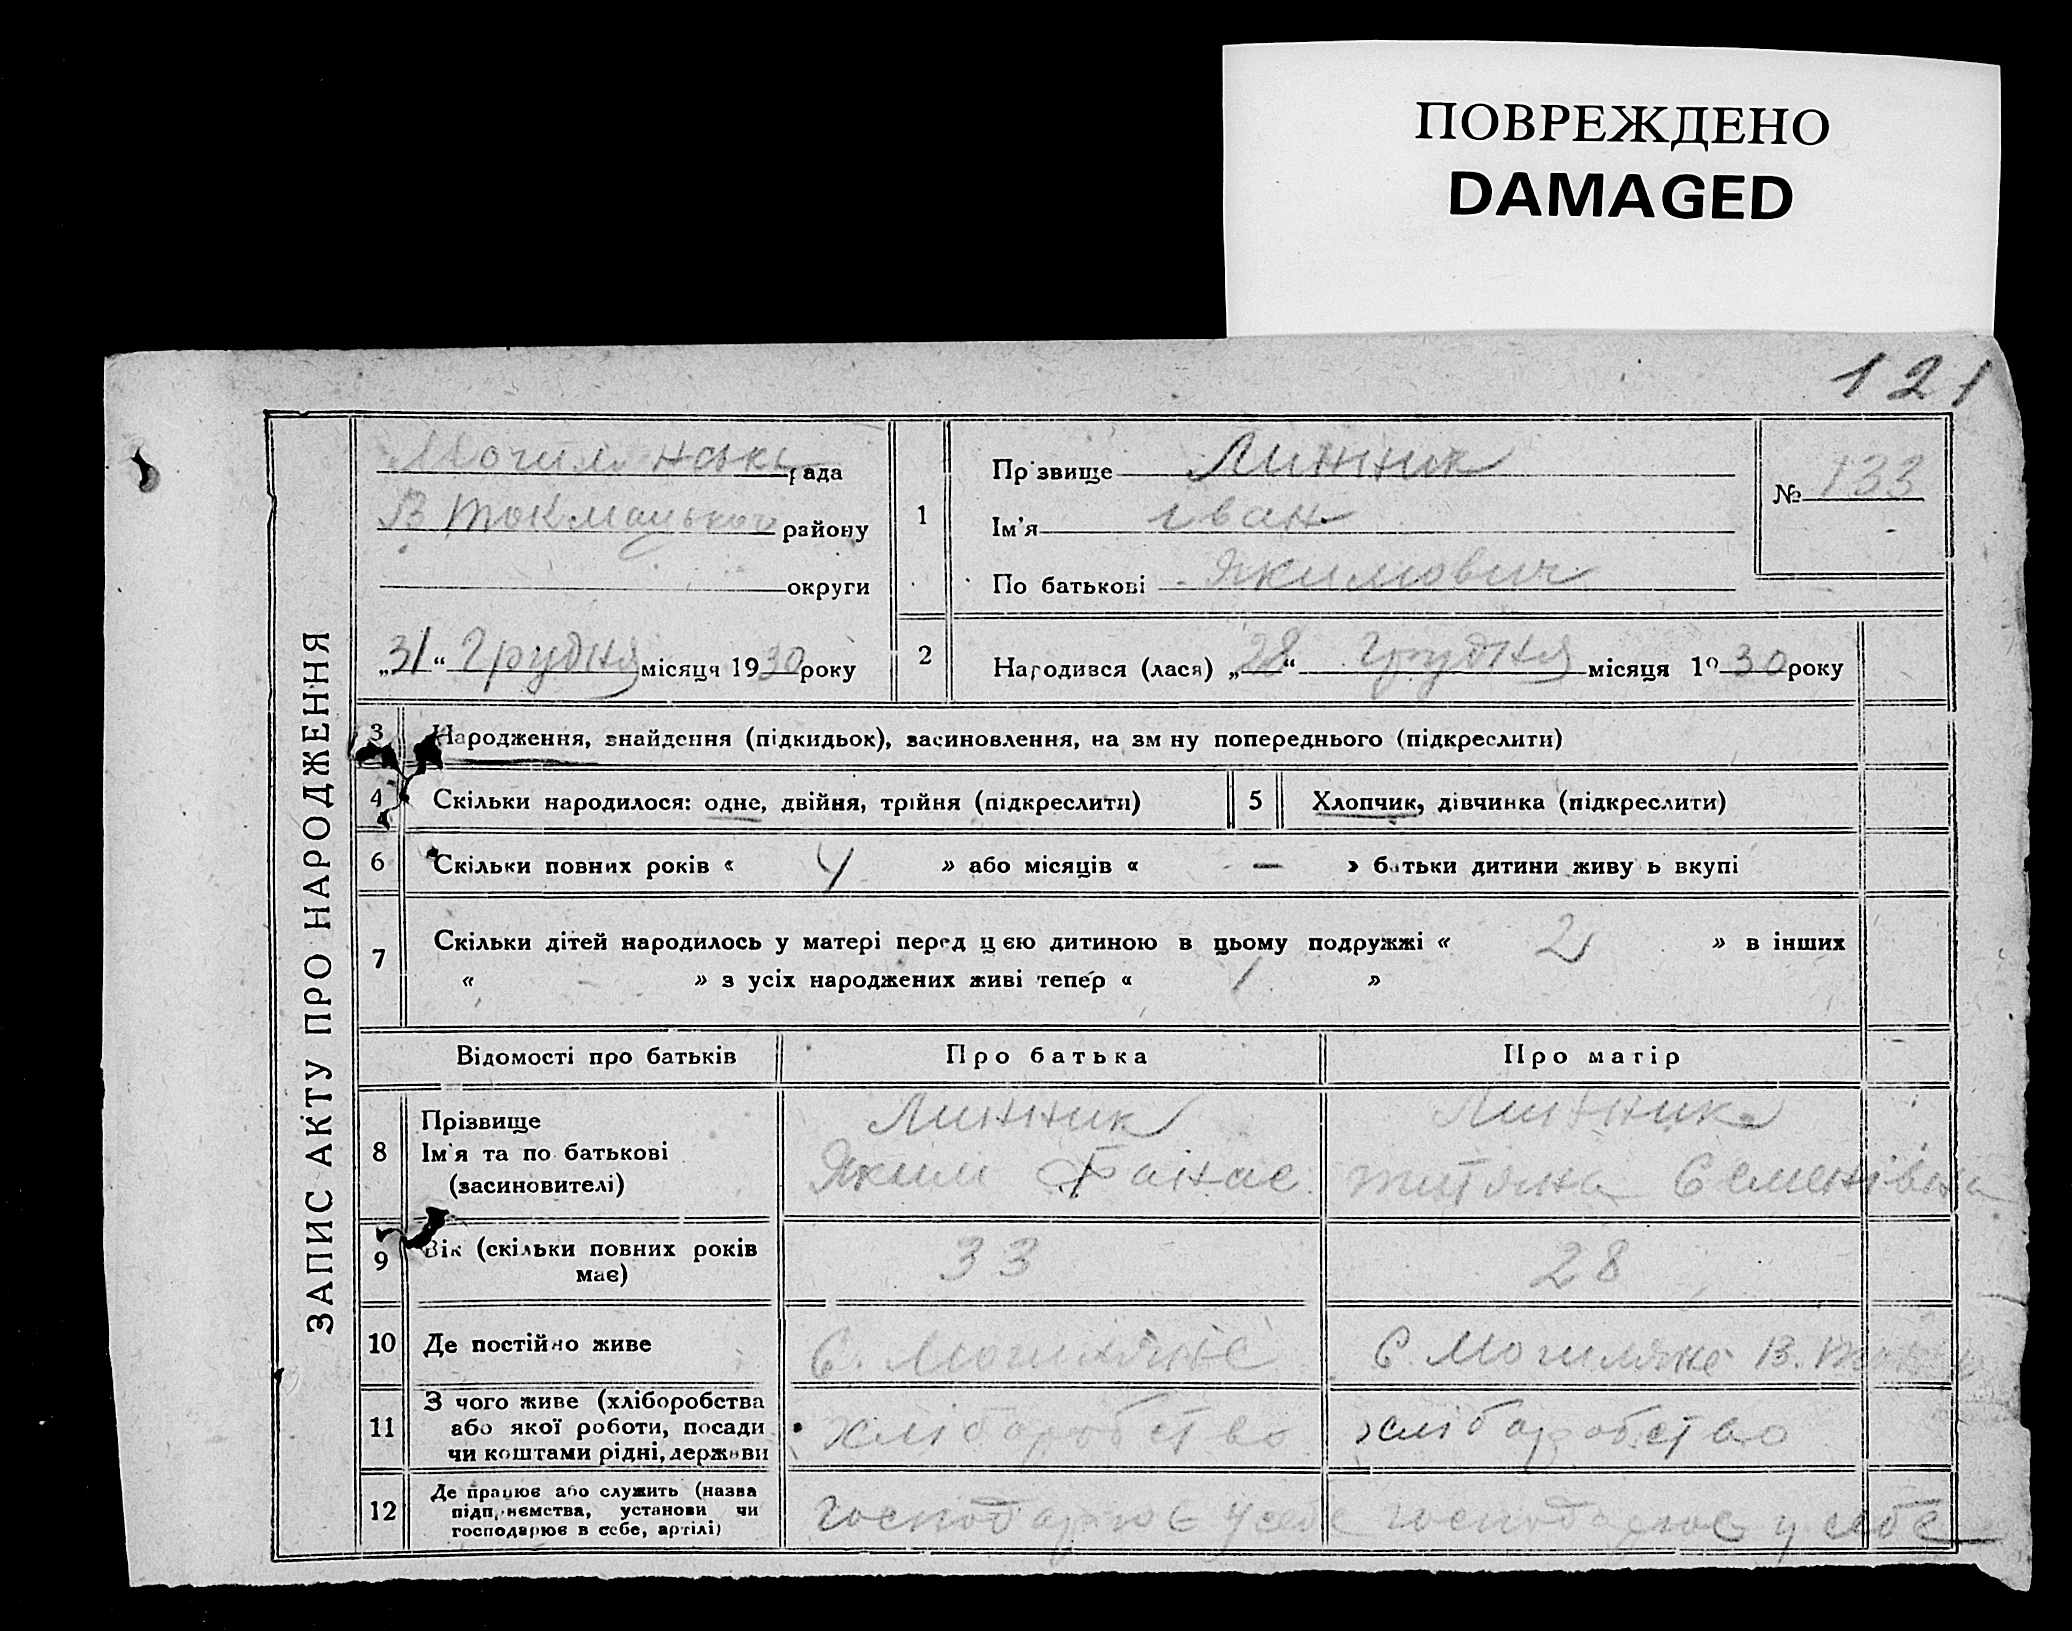 ПОВРЕЖДЕНО
DAMAGED
121
ЗАПИС АКТУ ПРО НАРОДЖЕННЯ
рада
В Токмацького району
округи
„31“ Грудня місяця 1930 року
1
Прізвище Линник
Ім'я іван
По батькові Якимович
№ 133
2 Народився (лася) „28“ Грудня місяця 1930 року
3 Народження, знайдення (підкидьок), засиновлення, на зм ну попереднього (підкреслити)
4 Скільки народилося: одне, двійня, трійня (підкреслити) 5 Хлопчик, дівчинка (підкреслити)
6 Скільки повних років « 4 » або місяців « — » батьки дитини живу ь вкупі
7 Скільки дітей народилось у матері перед цєю дитиною в цьому подружжі « 2 » в інших
« » з усіх народжених живі тепер « 1 »
Відомості про батьків Про батька Про матір
8 Прізвище Линник Линник
Ім'я та по батькові Яким Панас Титяна Семенівна
(засиновителі)
9 Вік (скільки повних років має) 33 28
10 Де постійно живе С. Могиляне С. Могиляне В.
11 З чого живе (хліборобства
або якої роботи, посади
чи коштами рідні, держави хліборобство хліборобство
12 Де працює або служить (назва
підприємства, установи чи
господарює в себе, артілі) господарює у себе господарює у себе